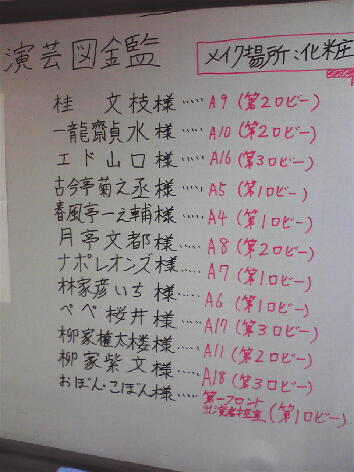 演芸図鑑
メイク場所：化粧
桂 文枝様……A9（第2ロビー）
一龍齋貞水様……A10（第2ロビー）
エド山口様……A16（第3ロビー）
古今亭菊之丞様……A5（第1ロビー）
春風亭一之輔様……A4（第1ロビー）
月亭文都様……A8（第2ロビー）
ナポレオンズ様……A7（第1ロビー）
林家彦いち様……A6（第1ロビー）
ペペ桜井様……A17（第3ロビー）
柳家権太楼様……A11（第2ロビー）
柳家紫文様……A18（第3ロビー）
おぼん・こぼん様……第一フロント出演者控室（第1ロビー）